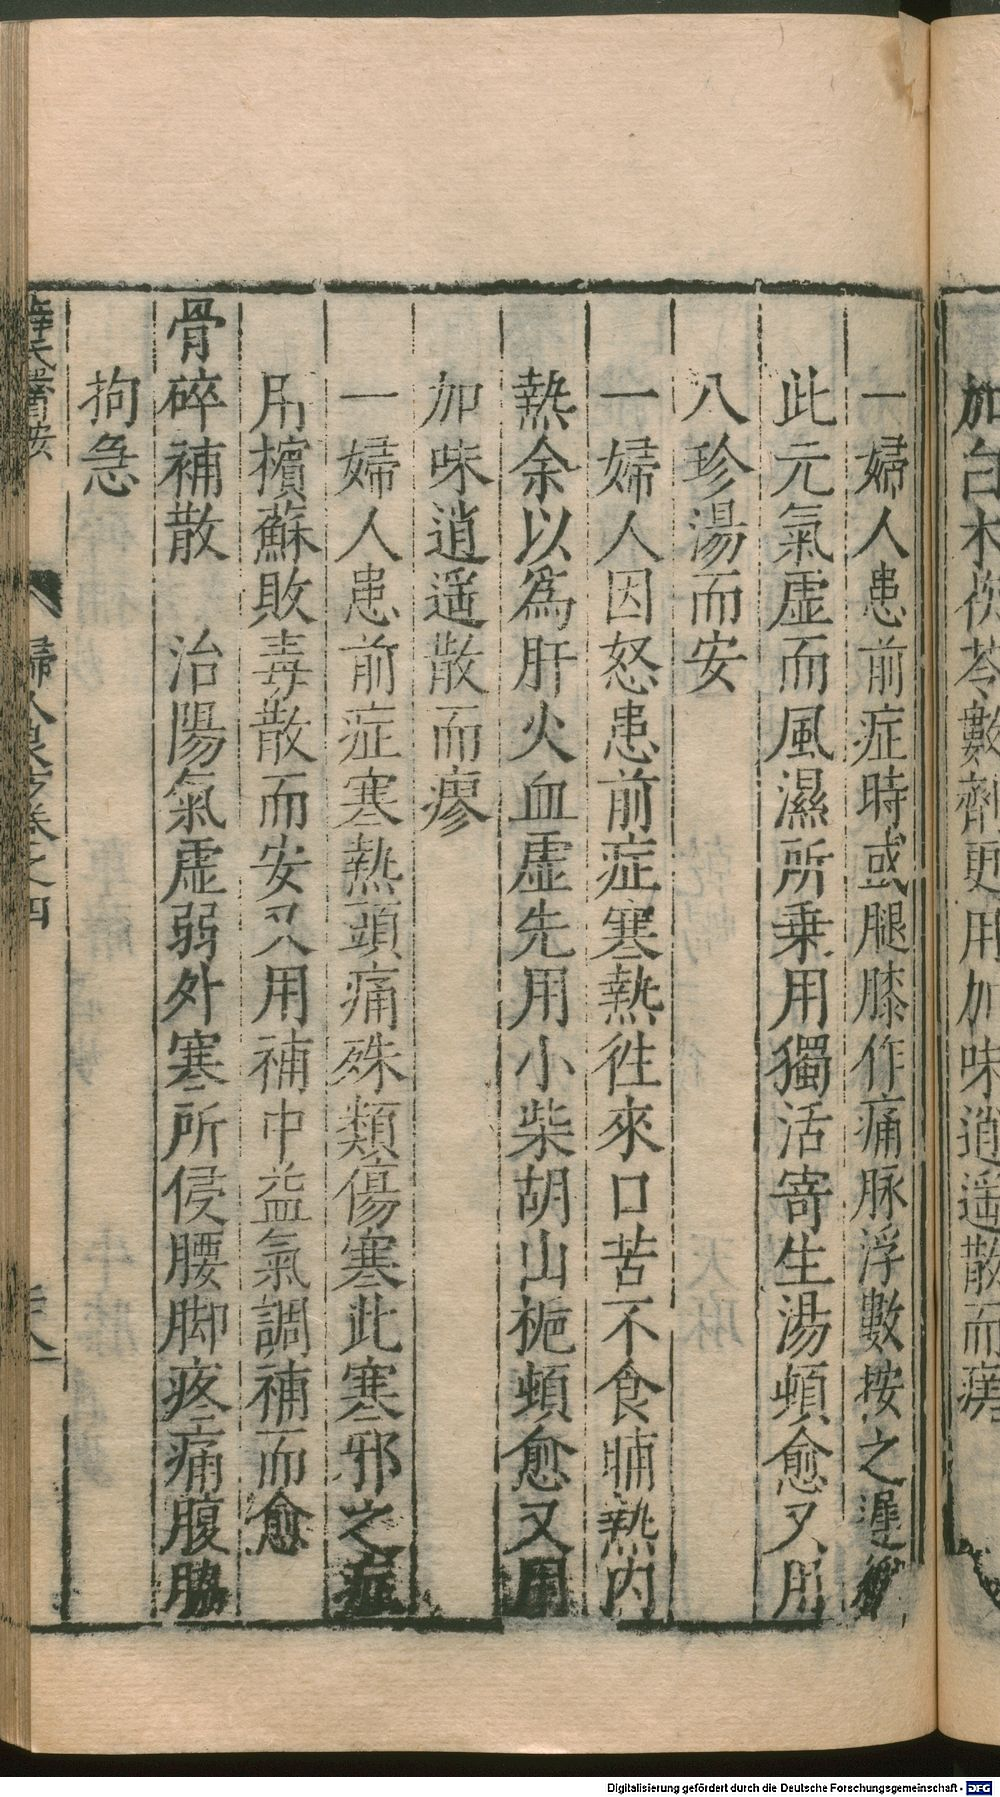 加白朮伏苓數劑更用加味逍遥散而瘥
一婦人患前症時或腿膝作痛脉浮數按之遲
此元氣虛而風濕所乗用獨活寄生湯頓愈又用
八珍湯而安
一婦人因怒患前症寒熱徃來口苦不食晡熱内
熱余以為肝火血虛先用小柴胡山梔頓愈又用
加味逍遥散而瘳
一婦人患前症寒熱頭痛殊類傷寒此寒邪之症
用檳蘇敗毒散而安又用補中益氣調補而愈
骨碎補散　治陽氣虛弱外寒所侵腰脚疼痛腹脇
拘急
薛氏醫按　婦人良方卷之四
Digitalisierung gefördert durch die Deutsche Forschungsgemeinschaft - DFG